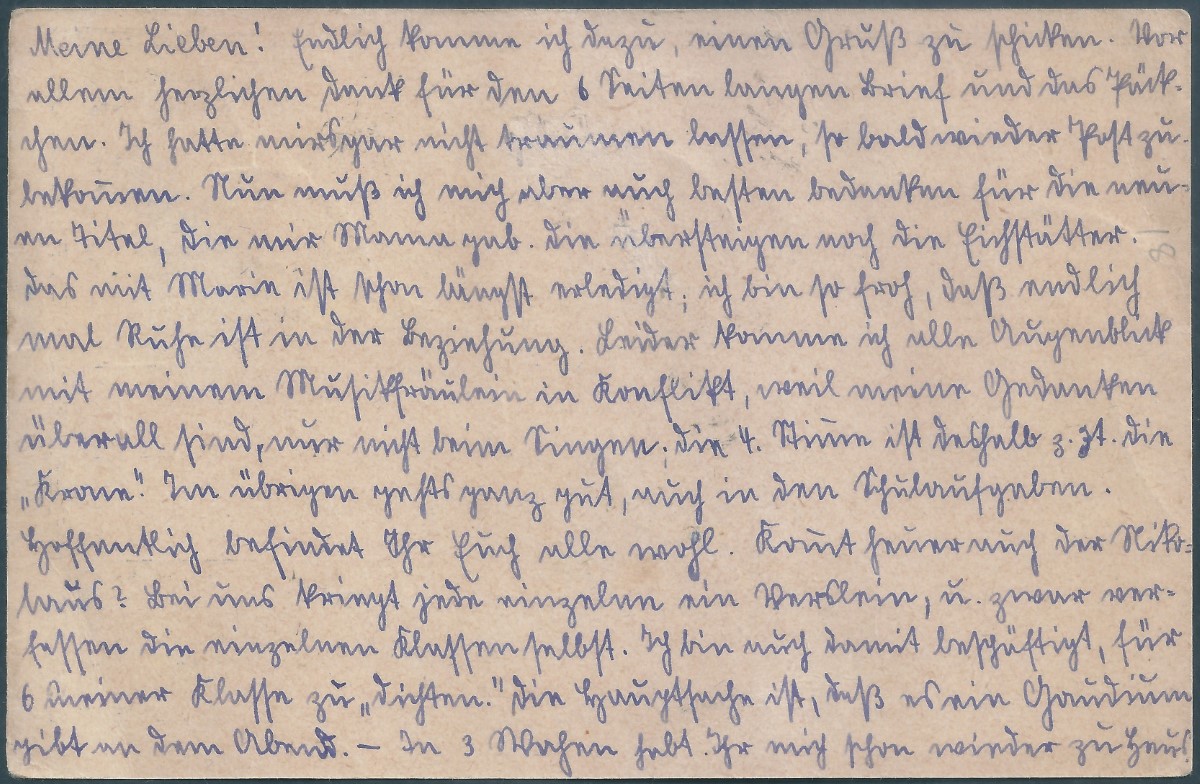 Meine Lieben! Endlich komme ich dazu, einen Gruß zu schicken. Vor
allem herzlichen Dank für den 6 Seiten langen Brief und das Päck-
chen. Ich hatte mirs gar nicht traumen lassen, so bald wieder Post zu
bekom̅en. Nun muß ich mich aber auch besten bedanken für die neu-
en Titel, die mir Mama gab. Die übersteigen noch die Eichstätter.
Das mit Marie ist schon längst erledigt; ich bin so froh, daß endlich
mal Ruhe ist in der Beziehung. Leider komme ich alle Augenblick
mit meinem Musikfräulein in Konflikt, weil meine Gedanken
überall sind, nur nicht beim Singen; die 4. Stim̅e ist deshalb z. Zt. die
„Krone". Im übrigen gehts ganz gut, auch in den Schulaufgaben.
Hoffentlich befindet Ihr Euch alle wohl. Kom̅t heuer auch der Niko-
laus? Bei uns kriegt jede einzelne ein Verslein, u. zwar ver-
fassen die einzelnen Klassen selbst. Ich bin auch damit beschäftigt, für
6 meiner Klasse zu „dichten." Die Hauptsache ist, daß es ein Gaudium
gibt an dem Abend. – In 3 Wochen habt Ihr mich schon wieder zu Haus
18